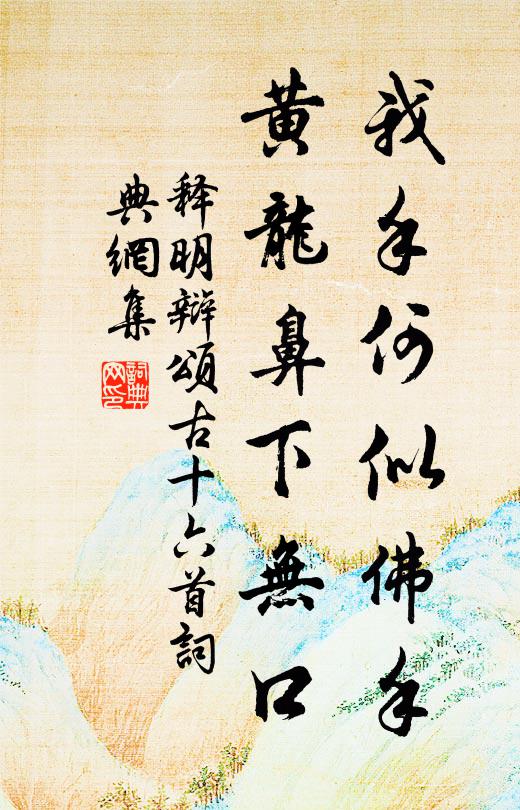 我手何似佛手
黄龍鼻下無口
释明辯頌古十六首詞
典網集
詞典网印